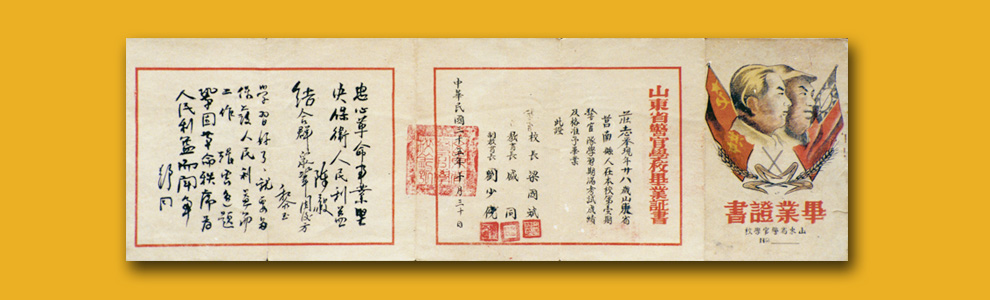 畢業證書
山東省警官學校
No.
山東省警官學校畢業証書
莊志孝現年廿八歲山東省
莒南縣人在本校第壹期
警官隊學習期滿考試成績
及格准予畢業
此證
校長 梁國斌
教育長 城同
副教育長 劉少儂
中華民國三十五年十月三十日
忠心革命事業堅
決保衛人民利益
陳毅
結合群眾
黎玉
學習好了,祝你為
保護人民利益而
工作
張雲逸題
鞏固革命秩序為
人民利益而鬥爭